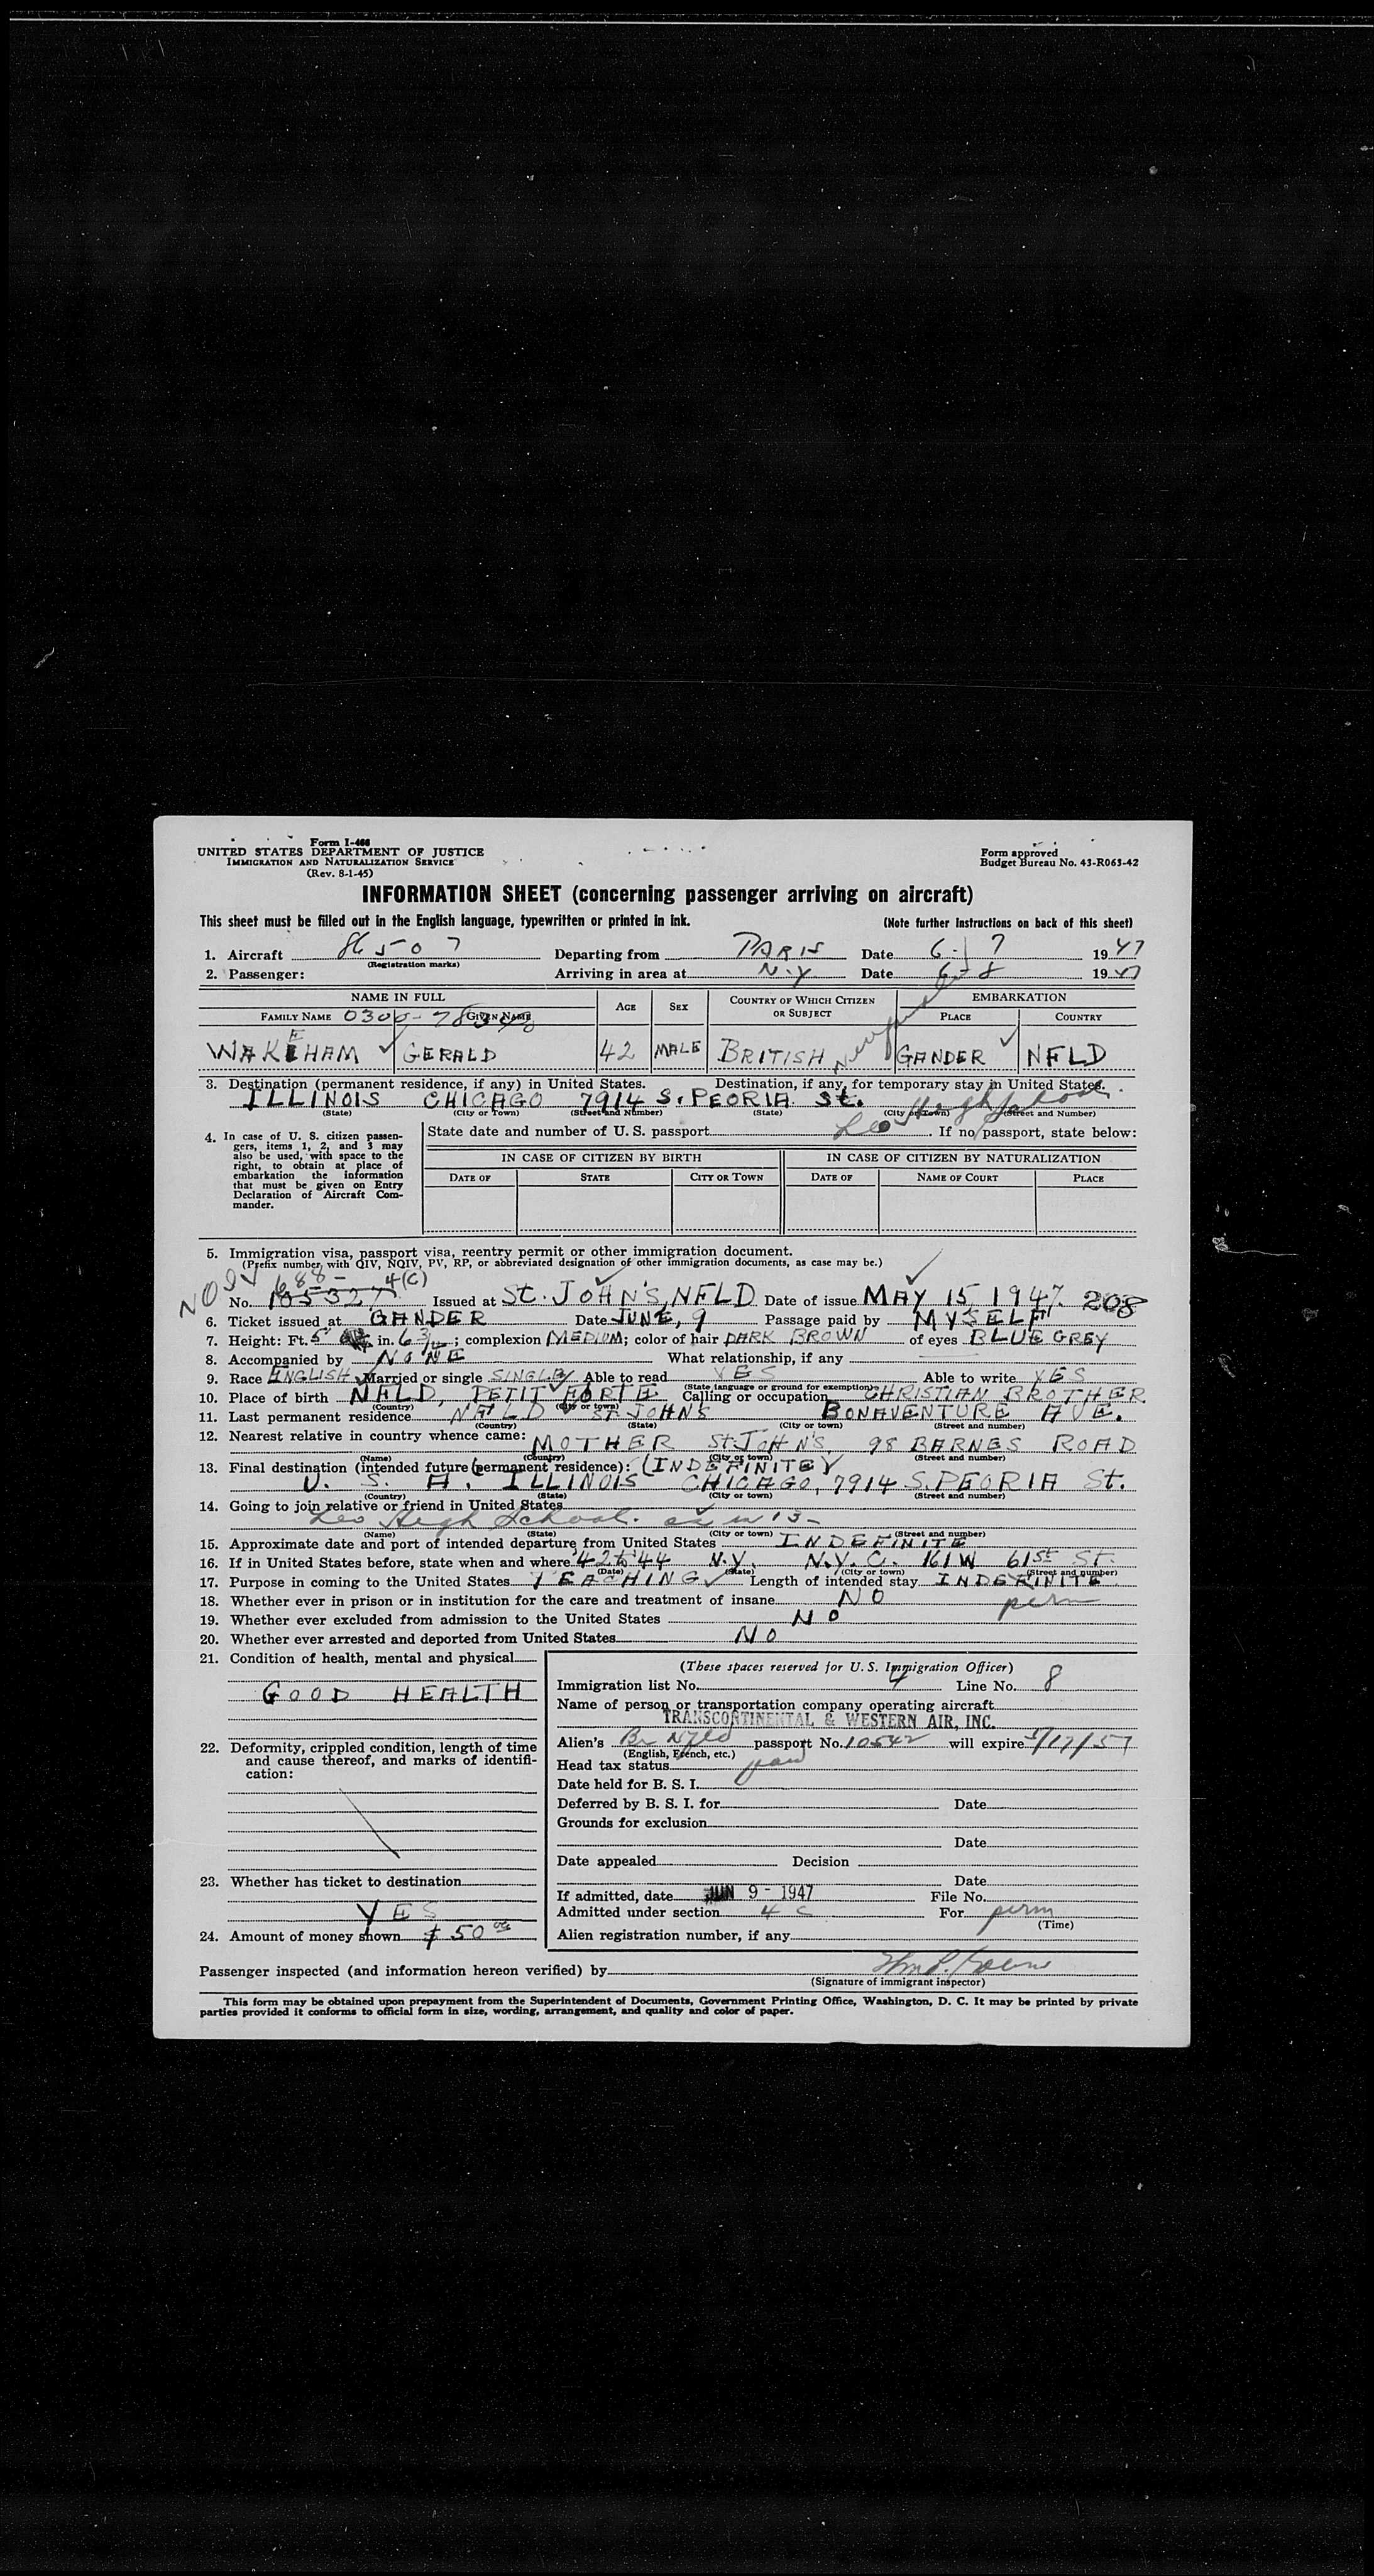 Form I-466
UNITED STATES DEPARTMENT OF JUSTICE
IMMIGRATION AND NATURALIZATION SERVICE
(Rev. 8-1-45)
Form approved
Budget Bureau No. 43-R063-42
INFORMATION SHEET (concerning passenger arriving on aircraft)
This sheet must be filled out in the English language, typewritten or printed in ink. (Note further instructions on back of this sheet)
1. Aircraft 86507 Departing from PARIS Date 6-7 1947
(Registration marks)
2. Passenger: Arriving in area at N.Y. Date 6-8 1947
NAME IN FULL AGE SEX COUNTRY OF WHICH CITIZEN OR SUBJECT EMBARKATION
FAMILY NAME GIVEN NAME PLACE COUNTRY
0300-
WAKEHAM GERALD 42 MALE BRITISH GANDER NFLD
3. Destination (permanent residence, if any) in United States. Destination, if any, for temporary stay in United States.
ILLINOIS CHICAGO 7914 S. PEORIA St.
(State) (City or Town) (Street and Number) (State) (City or Town) (Street and Number)
Leo High School
4. In case of U. S. citizen passengers, items 1, 2, and 3 may also be used, with space to the right, to obtain at place of embarkation the information that must be given on Entry Declaration of Aircraft Commander.
State date and number of U. S. passport. If no passport, state below:
IN CASE OF CITIZEN BY BIRTH IN CASE OF CITIZEN BY NATURALIZATION
DATE OF STATE CITY OR TOWN DATE OF NAME OF COURT PLACE
5. Immigration visa, passport visa, reentry permit or other immigration document.
(Prefix number with QIV, NQIV, PV, RP, or abbreviated designation of other immigration documents, as case may be.)
NQIV 688- 4(C)
No. 105327 Issued at St. JOHN'S, NFLD Date of issue MAY 15 1947. 208
6. Ticket issued at GANDER Date JUNE, 9 Passage paid by MYSELF
7. Height: Ft. 5 in. 6 3/4; complexion MEDIUM; color of hair DARK BROWN of eyes BLUE GREY
8. Accompanied by NONE What relationship, if any
9. Race ENGLISH Married or single SINGLE Able to read YES Able to write YES
(State language or ground for exemption)
10. Place of birth NFLD, PETIT FORTE Calling or occupation CHRISTIAN BROTHER
(Country) (City or town)
11. Last permanent residence NFLD ST. JOHNS BONAVENTURE AVE.
(Country) (State) (City or town) (Street and number)
12. Nearest relative in country whence came: MOTHER St. JOHN'S, 98 BARNES ROAD
(Name) (Country) (City or town) (Street and number)
13. Final destination (intended future permanent residence): (INDEFINITE)
U. S. A. ILLINOIS CHICAGO, 7914 S. PEORIA St.
(Country) (State) (City or town) (Street and number)
14. Going to join relative or friend in United States
Leo High School. as in 13-
(Name) (State) (City or town) (Street and number)
15. Approximate date and port of intended departure from United States INDEFINITE
16. If in United States before, state when and where '42 to '44 N.Y. N.Y.C. 161 W 61st St.
(Date) (State) (City or town) (Street and number)
17. Purpose in coming to the United States TEACHING Length of intended stay INDEFINITE
perm
18. Whether ever in prison or in institution for the care and treatment of insane NO
19. Whether ever excluded from admission to the United States NO
20. Whether ever arrested and deported from United States NO
21. Condition of health, mental and physical
GOOD HEALTH
22. Deformity, crippled condition, length of time and cause thereof, and marks of identification:
23. Whether has ticket to destination
YES
24. Amount of money shown $50 00
(These spaces reserved for U. S. Immigration Officer)
Immigration list No. 4 Line No. 8
Name of person or transportation company operating aircraft
TRANSCONTINENTAL & WESTERN AIR, INC.
Alien's Br Nfld passport No. 10542 will expire 5/17/57
(English, French, etc.)
Head tax status paid
Date held for B. S. I.
Deferred by B. S. I. for Date
Grounds for exclusion
Date
Date appealed Decision
Date
If admitted, date JUN 9 - 1947 File No.
Admitted under section 4 c For perm
(Time)
Alien registration number, if any
Passenger inspected (and information hereon verified) by
(Signature of immigrant inspector)
This form may be obtained upon prepayment from the Superintendent of Documents, Government Printing Office, Washington, D. C. It may be printed by private
parties provided it conforms to official form in size, wording, arrangement, and quality and color of paper.